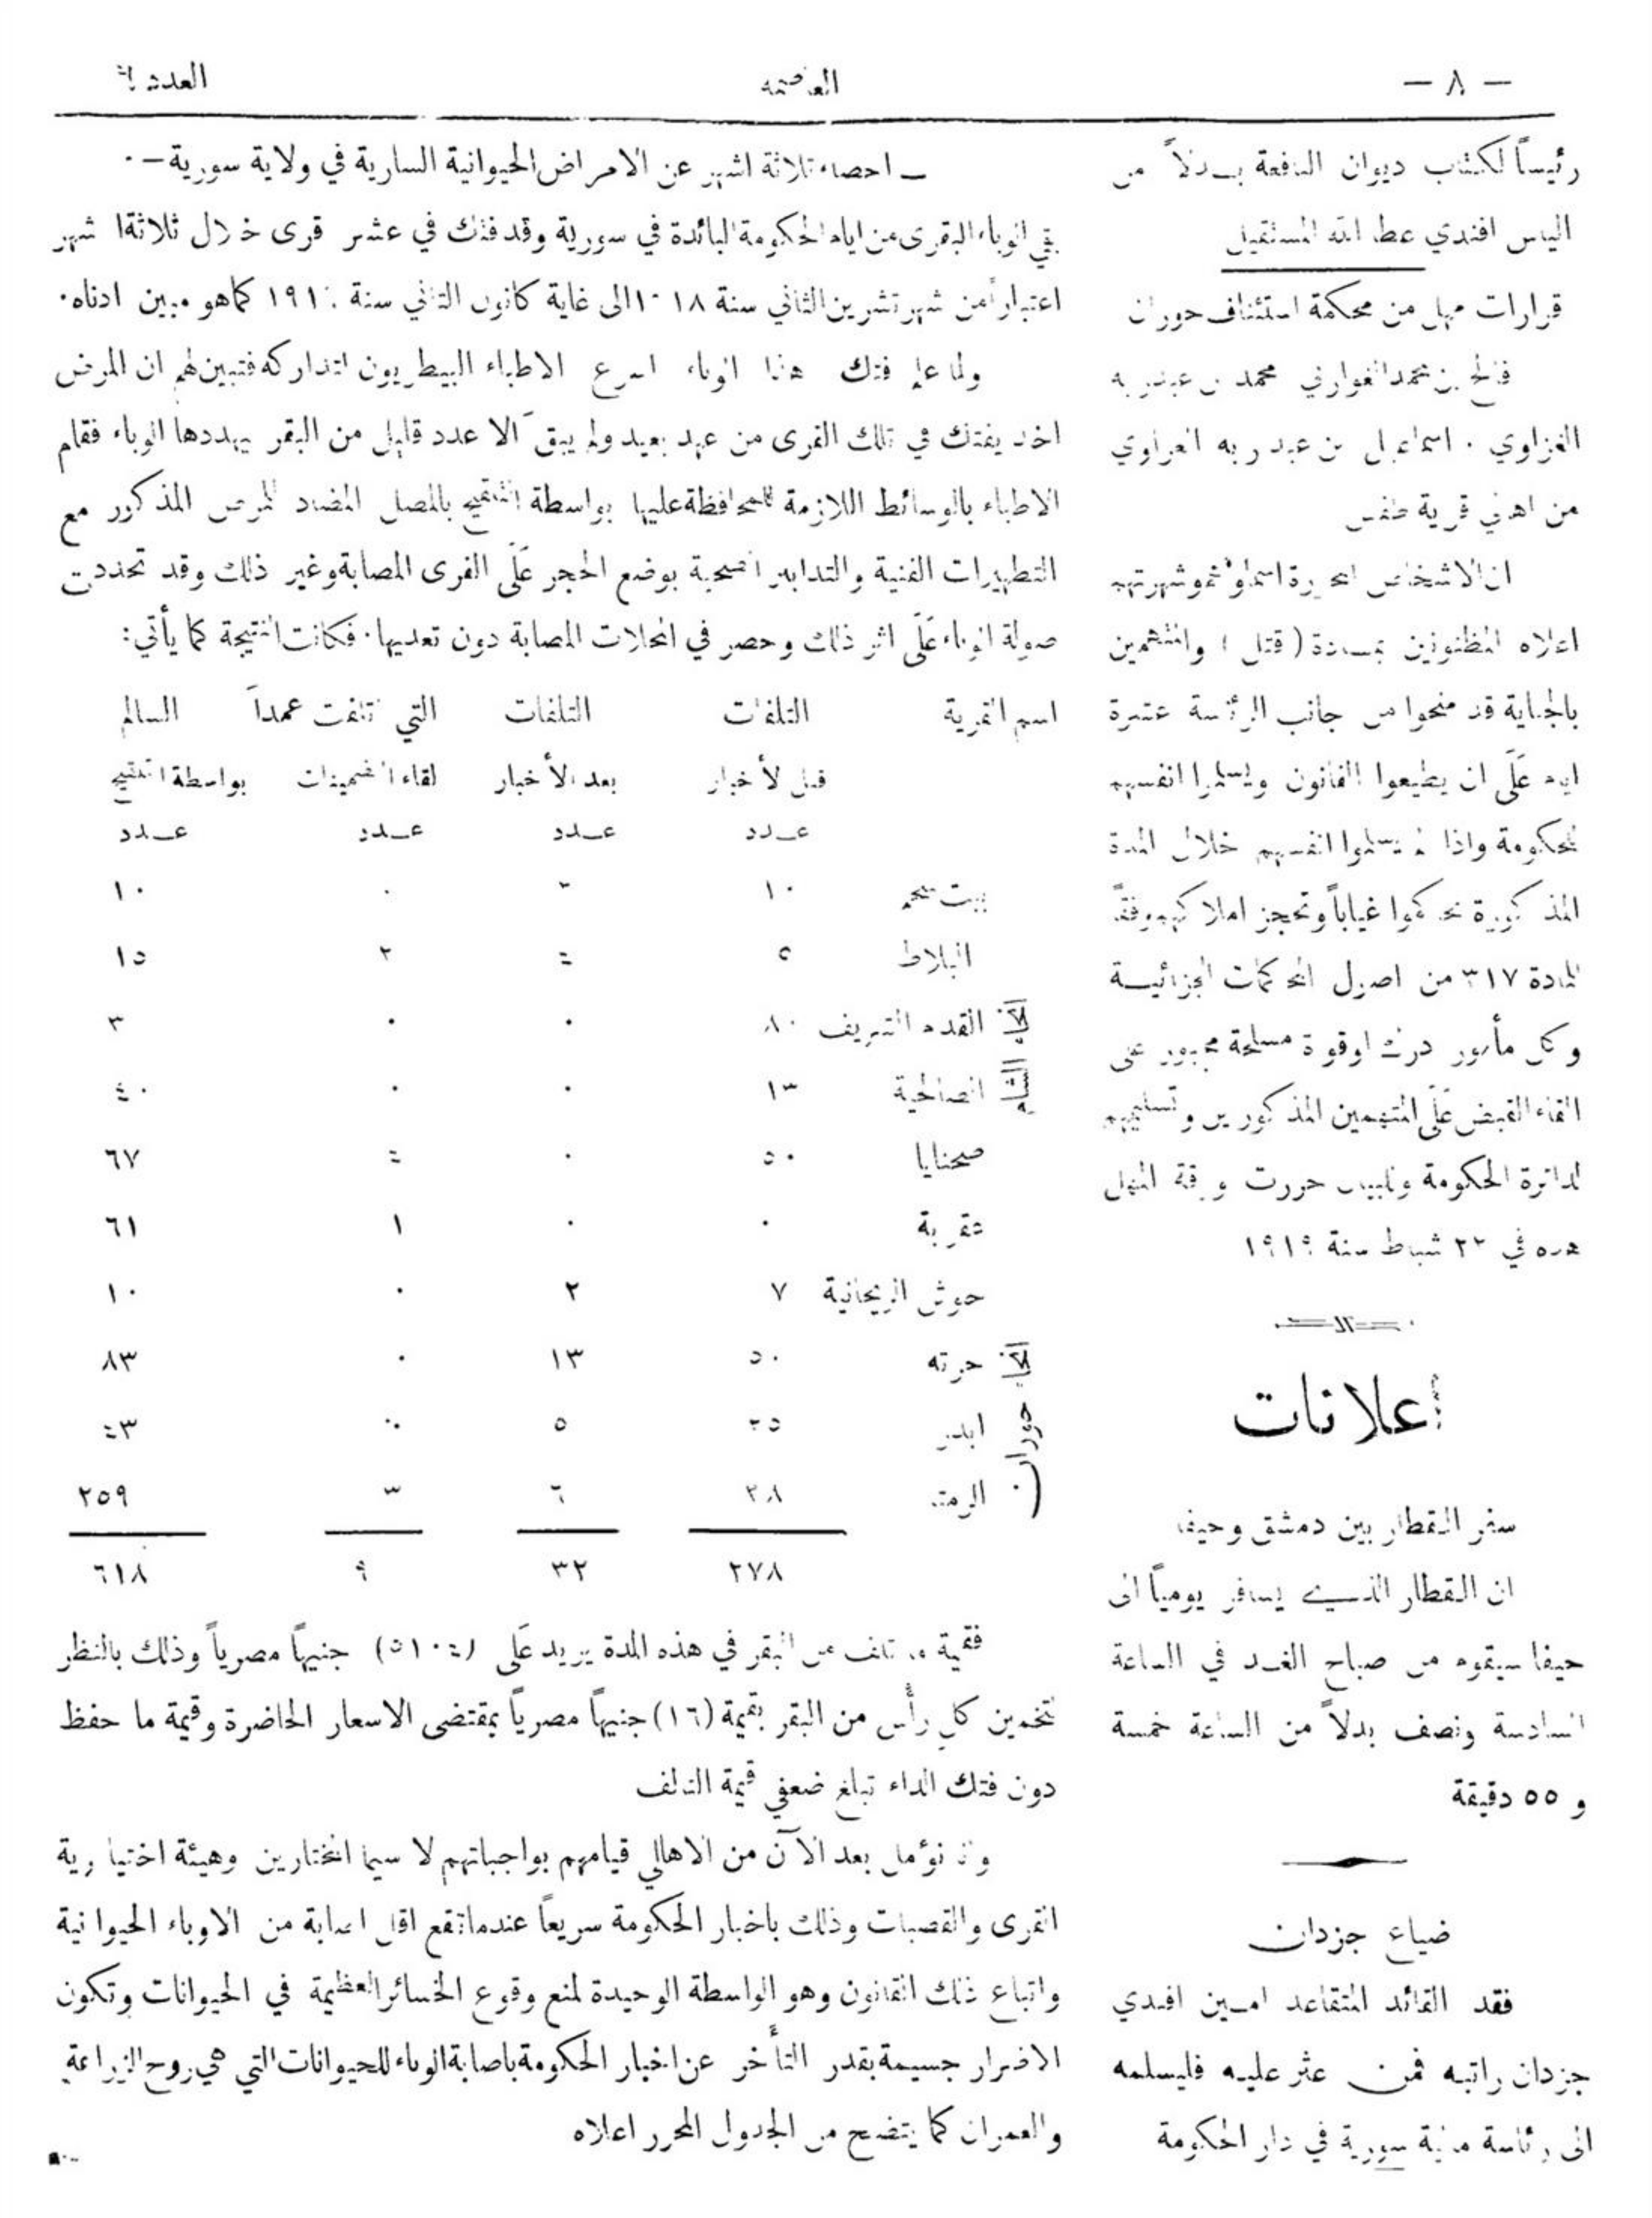 — ٨ —
العاصمة
العدد
رئيساً لكتاب ديوان النافعة بدلاً من
الياس افندي عطا الله المستقيل
قرارات مهل من محكمة استئناف حوران
فالح بن محمد الغوارني محمد بن عبد ربه
الغزاوي . اسماعيل بن عبد ربه الغزاوي
من اهالي قرية طفس
ان الاشخاص المحررة اسماؤهم وشهرتهم
اعلاه المظنونين بمادة ( قتل ) والمتهمين
بالجناية قد منحوا من جانب الرئاسة عشرة
ايام عَلَى ان يطيعوا القانون ويسلموا انفسهم
للحكومة واذا لم يسلموا انفسهم خلال المدة
المذكورة يحاكموا غياباً وتحجز املاكهم وفقاً
للمادة ٣١٧ من اصول المحاكمات الجزائيـة
وكل مأمور درك او قوة مسلحة مجبور على
القاء القبض عَلَى المتهمين المذكورين وتسليمهم
لدائرة الحكومة ولبيان حررت ورقة المهل
هذه في ٢٢ شباط سنة ١٩١٩
إعلانات
سفر القطار بين دمشق وحيفا
ان القطار الذي يسافر يومياً الى
حيفا سيقوم من صباح الغد في الساعة
السادسة ونصف بدلاً من الساعة خمسة
و ٥٥ دقيقة
ضياع جزدان
فقد القائد المتقاعد امين افندي
جزدان راتبه فمن عثر عليه فليسلمه
الى رئاسة مالية سورية في دار الحكومة
— احصاء ثلاثة اشهر عن الامراض الحيوانية السارية في ولاية سورية —
بقي الوباء البقرى من ايام الحكومة البائدة في سورية وقد فتك في عشر قرى خلال ثلاثة اشهر
اعتباراً من شهر تشرين الثاني سنة ١٩١٨ الى غاية كانون الثاني سنة ١٩١٩ كما هو مبين ادناه.
ولما علم فتك هذا الوباء اسرع الاطباء البيطريون لتداركه فتبين لهم ان المرض
اخذ يفتك في تلك القرى من عهد بعيد ولم يبق الا عدد قليل من البقر يهددها الوباء فقام
الاطباء بالوسائط اللازمة للمحافظة عليها بواسطة التلقيح بالمصل المضاد للمرض المذكور مع
التطهيرات الفنية والتدابير الصحية بوضع الحجر عَلَى القرى المصابة وغير ذلك وقد تحددت
صولة الوباء عَلَى اثر ذلك وحصر في المحلات المصابة دون تعديها. فكانت النتيجة كما يأتي:
اسم القرية التلفات التلفات التي تلفت عمداً السالم
قبل الأخبار بعد الأخبار لقاء التضمينات بواسطة التلقيح
عـدد عـدد عـدد عـدد
بيت سحم ١٠ . ١٠
البلاط ٥ ٤ ٢ ١٥
القدم الشريف ٨٠ ٠ ٠ ٣
الصالحية ١٣ ٠ ٠ ٤٠
صحنايا ٥٠ ٠ ٦٧
عقربة ٠ ٠ ١ ٦١
حوش الريحانية ٧ ٢ ٠ ١٠
حرته ٥٠ ١٣ ٠ ٨٣
ابدر ٣٥ ٥ ٠ ٤٣
الرمتا ٢٨ ٦ ٣ ٢٥٩
٢٧٨ ٣٢ ٩ ٦١٨
فقيمة ما تلف من البقر في هذه المدة يزيد عَلَى (٥١٠٤) جنيهاً مصرياً وذلك بالنظر
لتخمين كل رأس من البقر بقيمة (١٦) جنيهاً مصرياً بمقتضى الاسعار الحاضرة وقيمة ما حفظ
دون فتك الداء تبلغ ضعفي قيمة التالف
وانا نؤمل بعد الآن من الاهالي قيامهم بواجباتهم لا سيما المختارين وهيئة اختيارية
القرى والقصبات وذلك باخبار الحكومة سريعاً عندما تقع اقل اصابة من الاوباء الحيوانية
واتباع ذلك القانون وهو الواسطة الوحيدة لمنع وقوع الخسائر العظيمة في الحيوانات وتكون
الاضرار جسيمة بقدر التأخر عن اخبار الحكومة باصابة الوباء للحيوانات التي هي روح الزراعة
والعمران كما يتضح من الجدول المحرر اعلاه